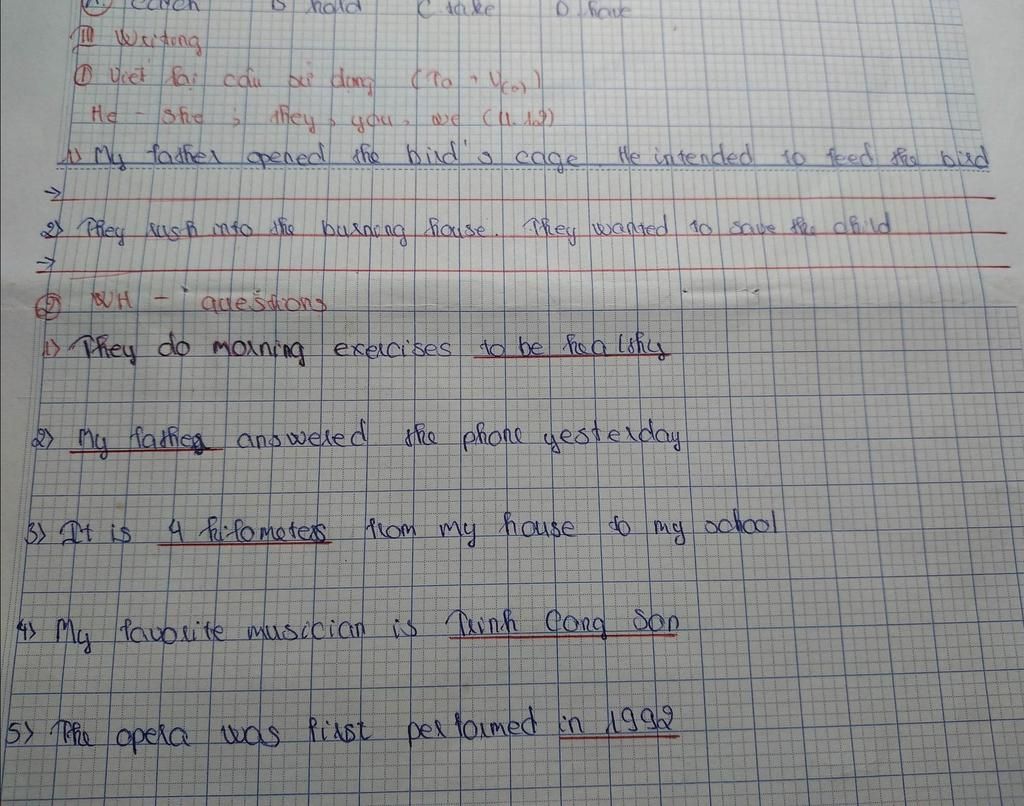 A. catch B hold C take D have
III Writing
① Viết lại câu sử dụng (To + V(o))
He - she, they, you, we (1.12)
1) My father opened the bird's cage. He intended to feed the bird
→
2) They rush into the burning house. They wanted to save the child
→
② WH - questions
1) They do morning exercises to be healthy
2) My father answered the phone yesterday
3) It is 4 kilometers from my house to my school
4) My favorite musician is Trinh Cong Son
5) The opera was first performed in 1992